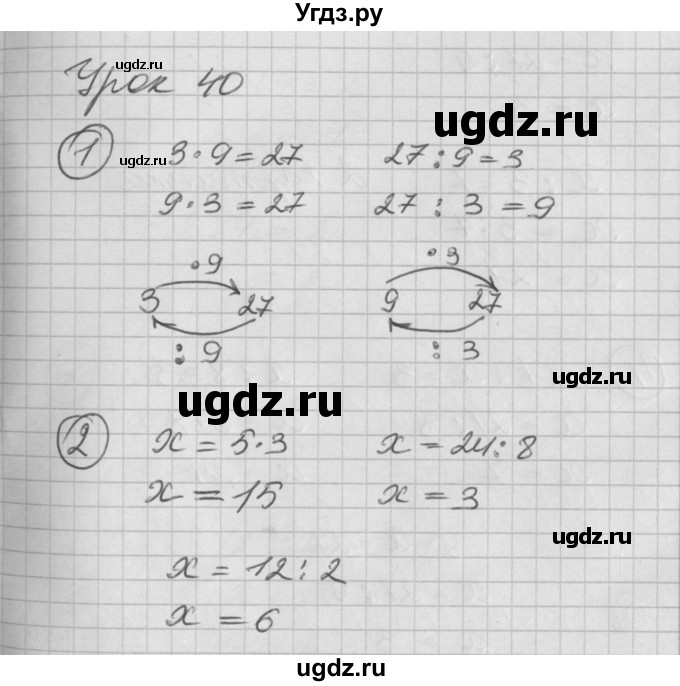 Угдз.ру
Урок 40
ugdz.ru
ugdz.ru
1 3·9=27 27:9=3
ugdz.ru
9·3=27 27:3=9
·9 ·3
3 27 9 27
:9 :3
ugdz.ru
ugdz.ru
2 x=5·3 x=24:8
x=15 x=3
ugdz.ru
x=12:2
x=6
ugdz.ru